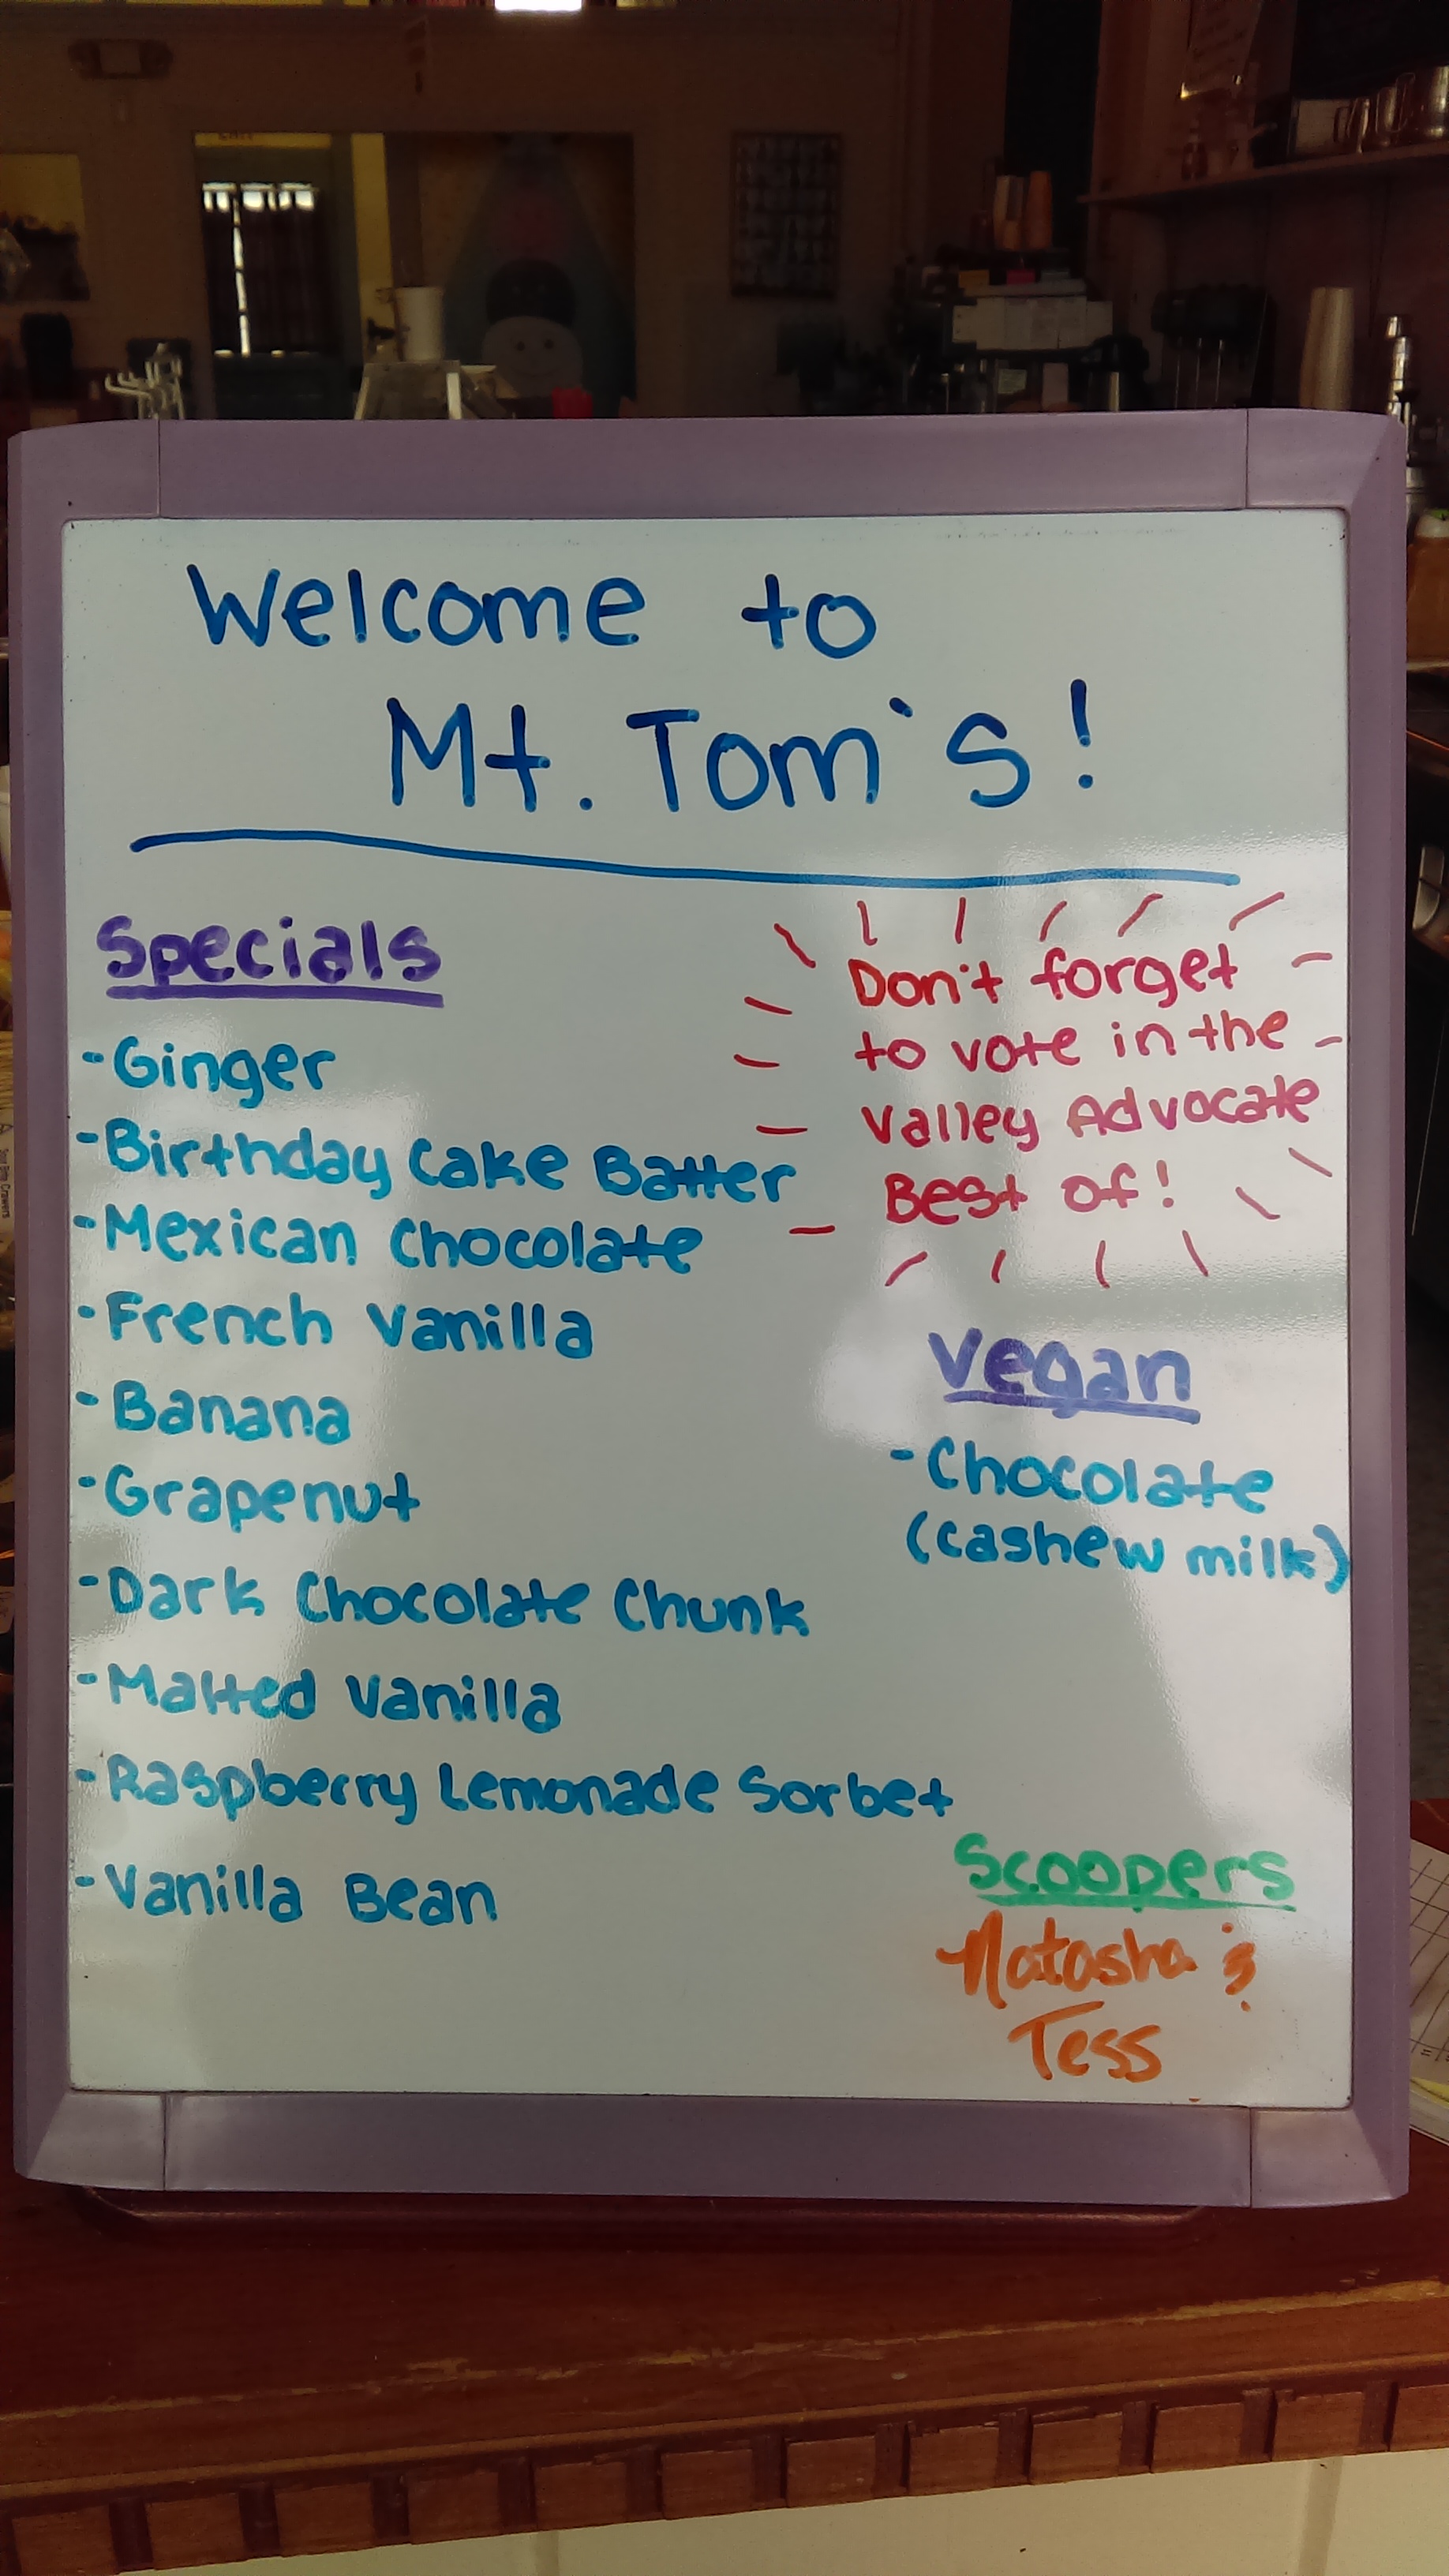 Welcome to
Mt. Tom's!
Specials
-Ginger
-Birthday Cake Batter
-Mexican Chocolate
-French Vanilla
-Banana
-Grapenut
-Dark Chocolate Chunk
-Malted Vanilla
-Raspberry Lemonade Sorbet
-Vanilla Bean
Don't forget
to vote in the
Valley Advocate
Best of!
Vegan
-Chocolate
(cashew milk)
Scoopers
Natasha &
Tess